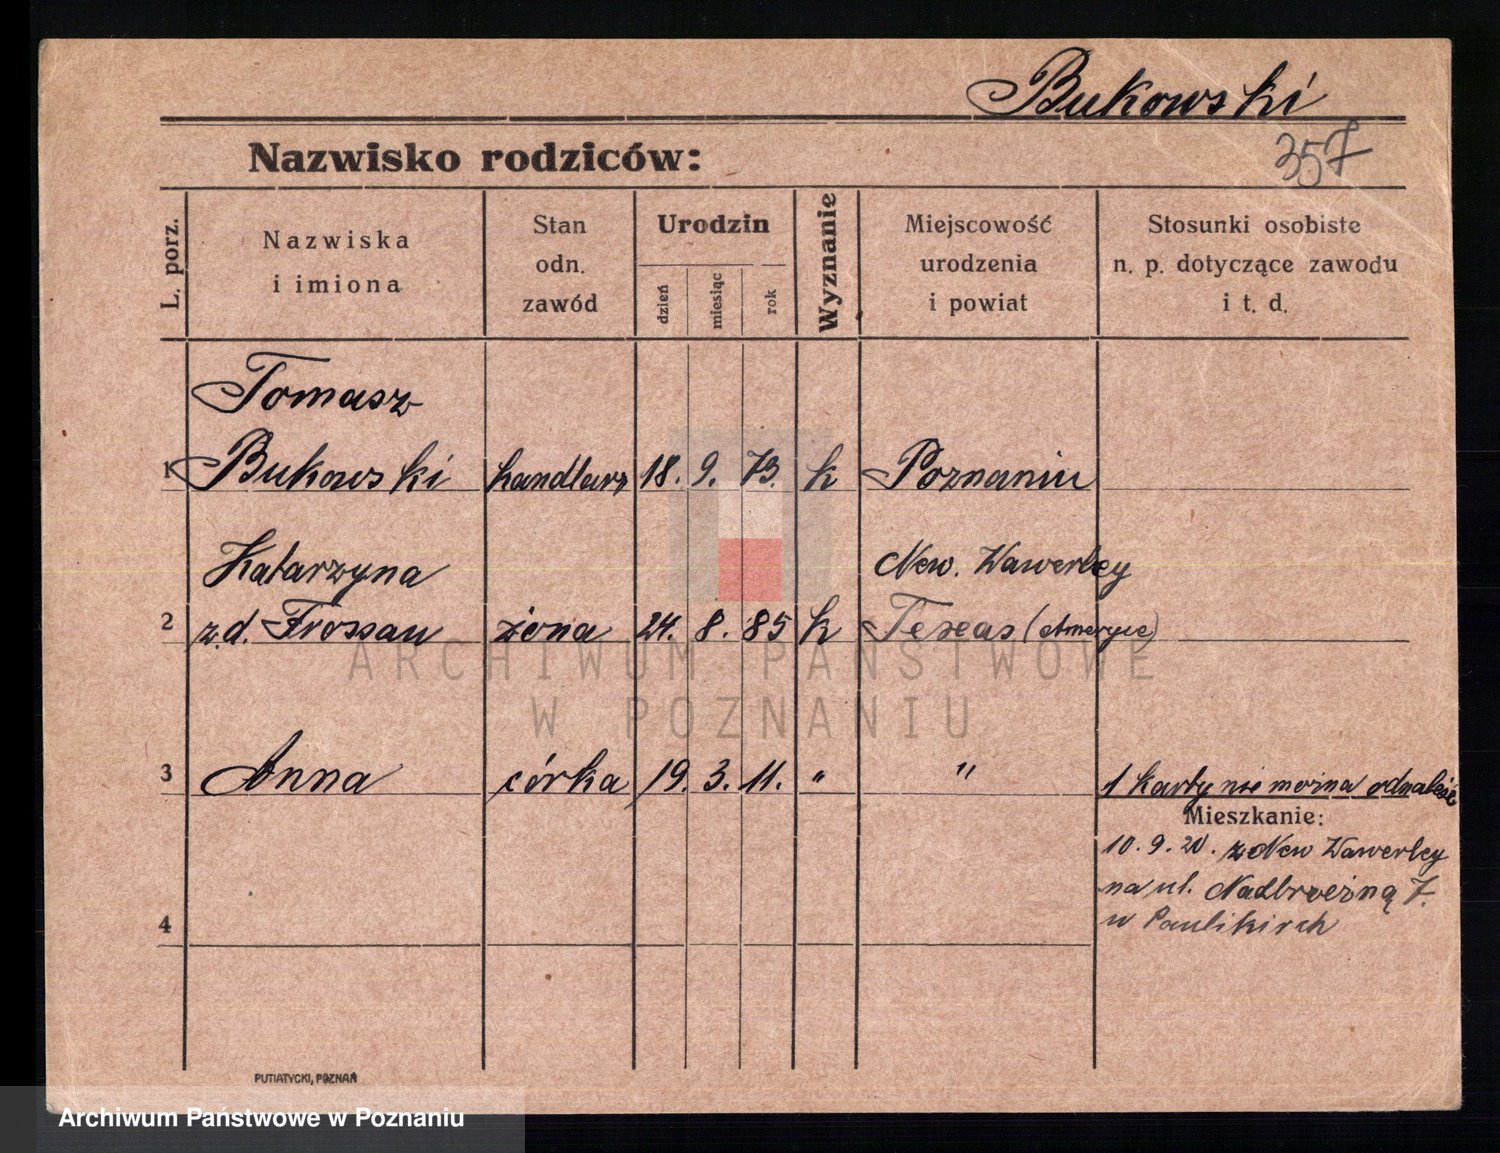 Bukowski
Nazwisko rodziców:
357
L. porz.
Nazwiska
i imiona
Stan
odn.
zawód
Urodzin
dzień
miesiąc
rok
Wyznanie
Miejscowość
urodzenia
i powiat
Stosunki osobiste
n. p. dotyczące zawodu
i t. d.
Tomasz
1 Bukowski handlarz 18. 9. 73. k Poznaniu
Katarzyna New. Wawerley
2 z.d. Frossau żona 24. 8. 85 k Texeas (Ameryce)
ARCHIWUM PAŃSTWOWE
W POZNANIU
3 Anna córka 19. 3. 11. " "
1 karty nie można odnaleść
Mieszkanie:
10. 9. 20. z New Wawerley
na ul. Nadbrzeżną 7.
w Paulikirch
4
PUTIATYCKI, POZNAŃ
Archiwum Państwowe w Poznaniu